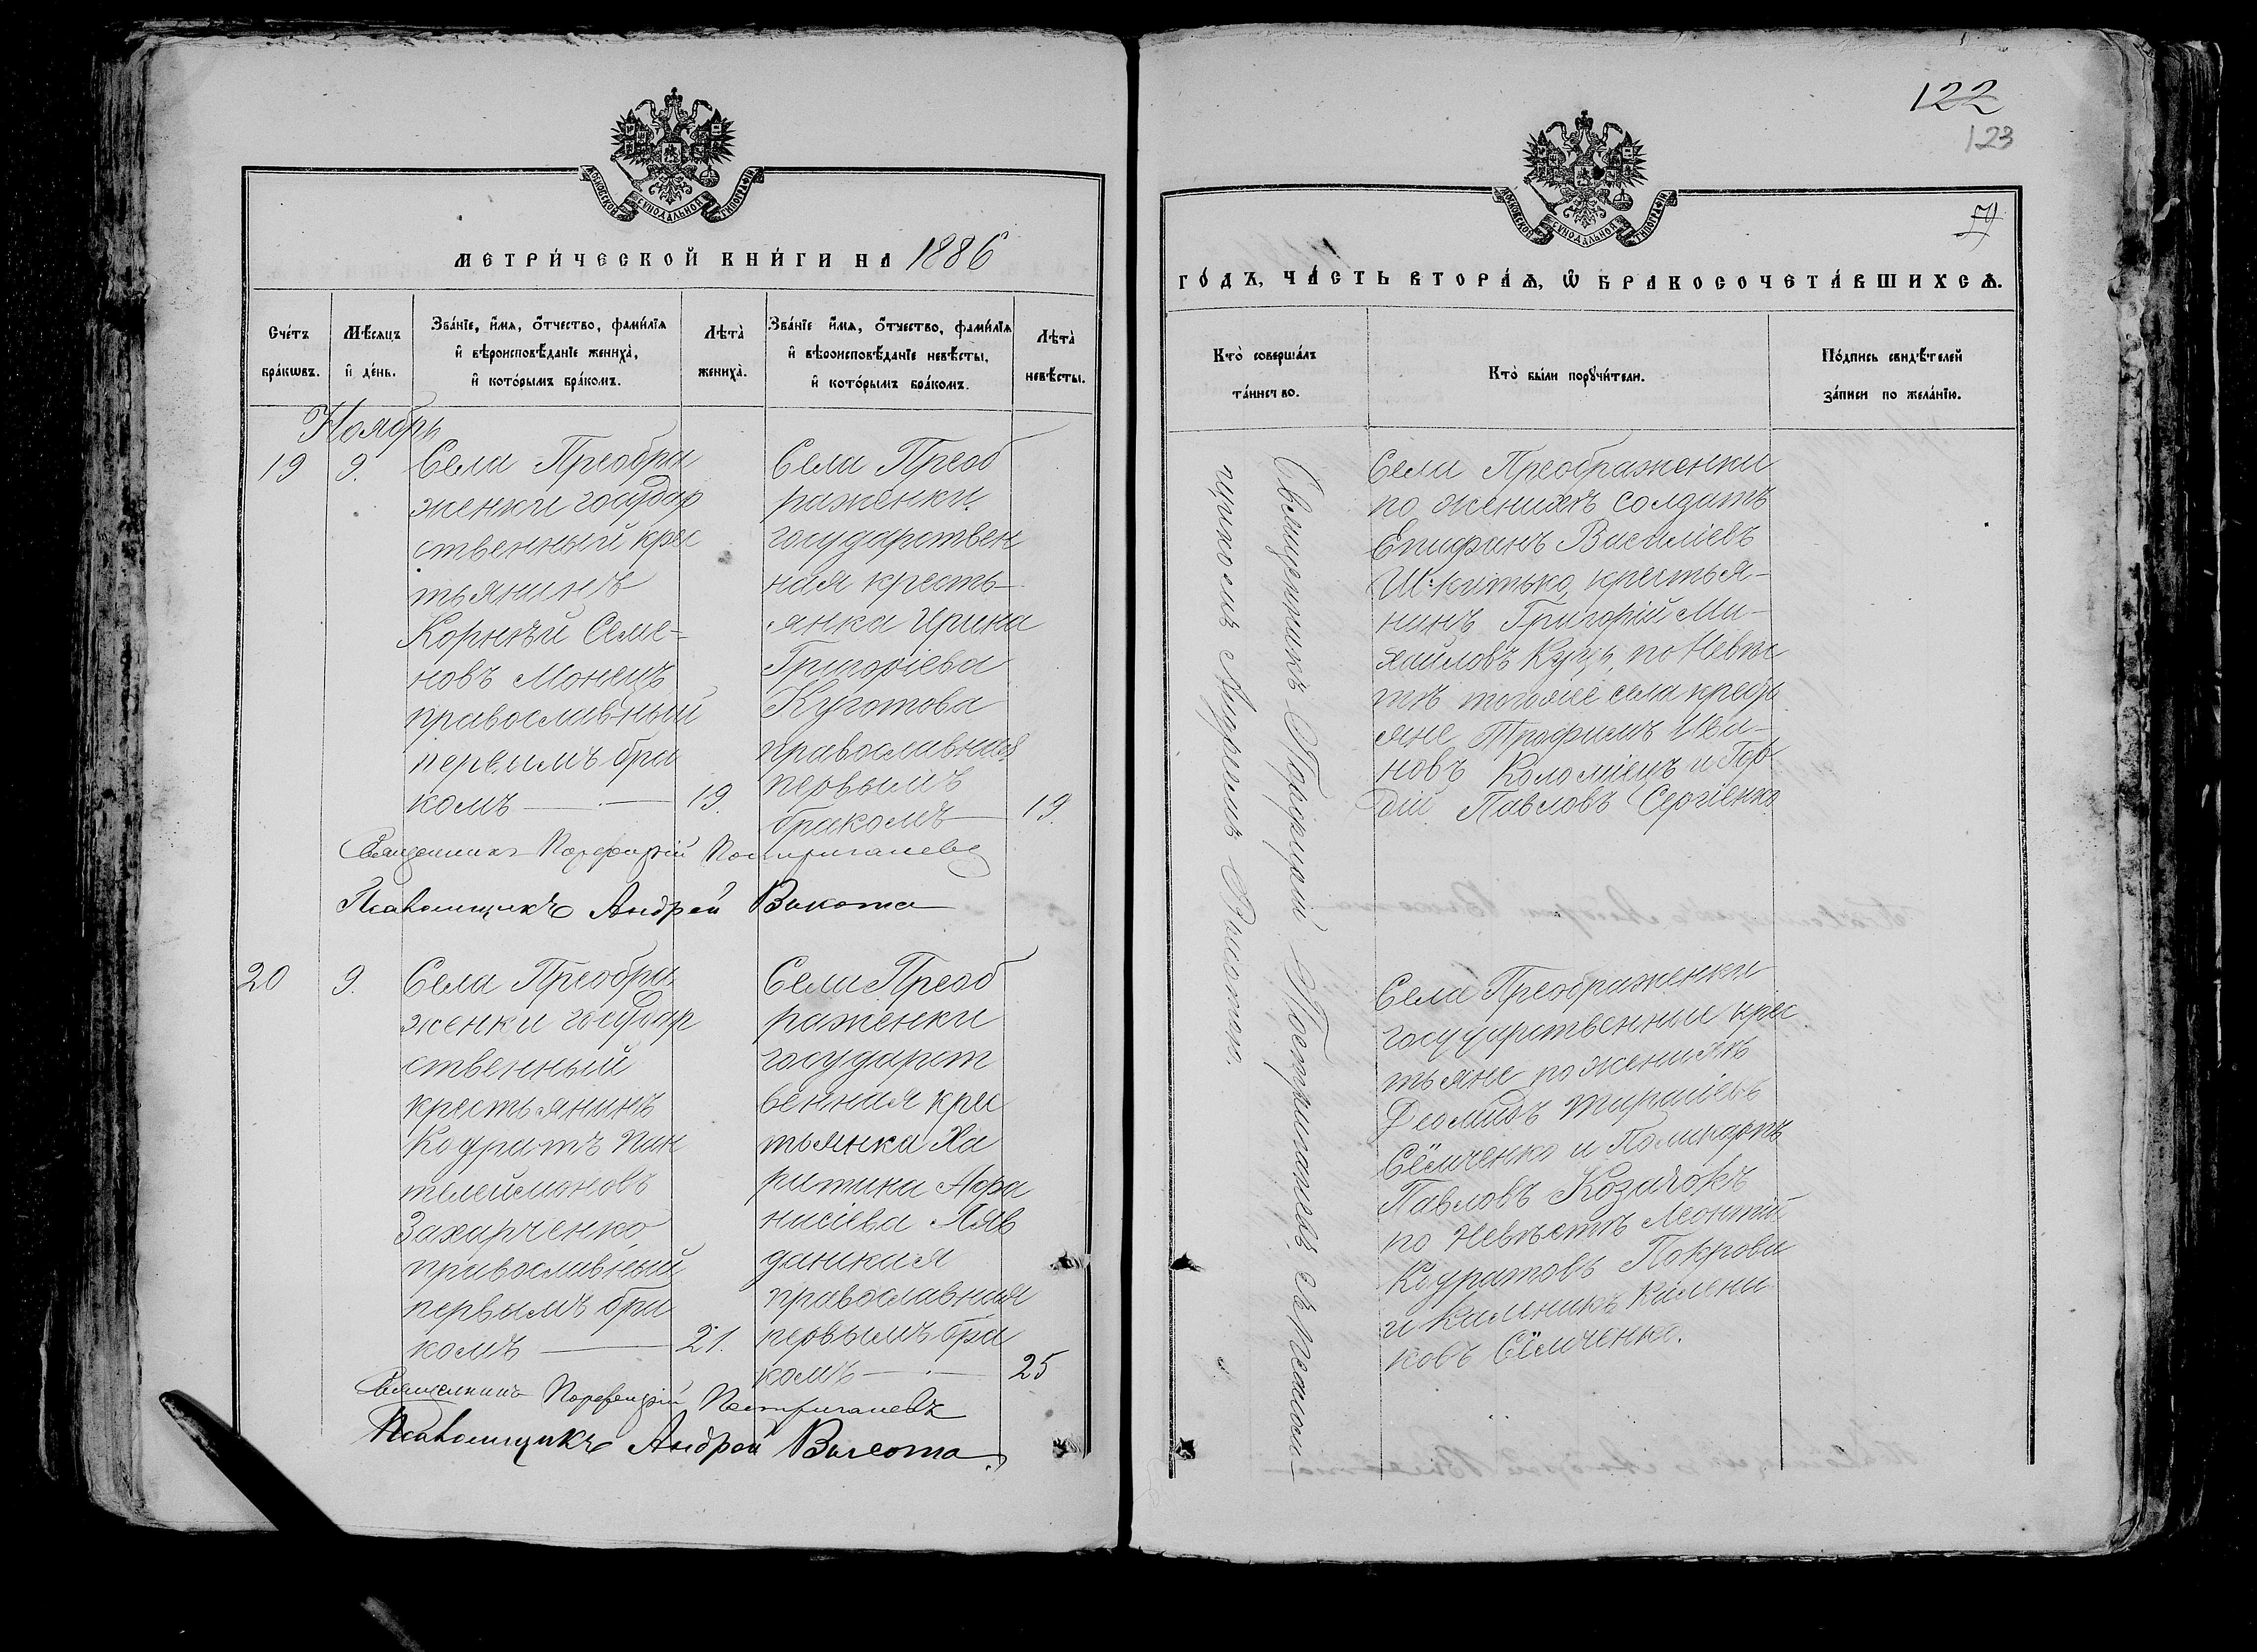 МОСКОВСКОЙ СѴНОДАЛЬНОЙ ТИПОГРАФІИ
МЕТРИ́ЧЕСКОЙ КНИ́ГИ НА 1886
Сче́тъ бра́кωвъ.
Мѣ́сяцъ и҆ де́нь.
Зва́нїе, и҆́мя, ѻ҆́тчество, фами́лїя
и҆ вѣроисповѣ́данїе жениха̀,
и҆ кото́рымъ бра́комъ.
Лѣта̀ жениха̀.
Зва́нїе и҆́мя, ѻ҆́тчество, фами́лїя
и҆ вѣроисповѣ́данїе невѣ́сты,
и҆ кото́рымъ бра́комъ.
Лѣта̀ невѣ́сты.
Ноябрь
19
9.
Села Преобра
женки государ
ственный крес
тьянинъ
Корнѣй Семе-
новъ Монецъ
православный
первымъ бра
комъ — 19.
Села Преоб
раженки
государствен
ная кресть-
янка Ирина
Григоріева
православная
первымъ
бракомъ — 19.
Священникъ Порфирій
Псаломщикъ Андрей Висота
20
9.
Села Преобра
женки государ
ственный
крестьянинъ
Кодратъ Пан
телеймоновъ
Захарченко
православный
первымъ бра
комъ — 21.
Села Преоб
раженки
государст
венная крес
тьянка Ха
ритина Афа
насіева
православная
первымъ бра
комъ — 25
Священникъ Порфирій
Псаломщикъ Андрей Висота
122
123
79
МОСКОВСКОЙ СѴНОДАЛЬНОЙ ТИПОГРАФІИ
ГО́ДЪ, ЧА́СТЬ ВТОРА́Ѧ, Ѽ БРАКОСОЧЕТА́ВШИХСѦ.
Кто̀ соверша́лъ
та́инство.
Кто̀ бы́ли порꙋчи́тели.
По́дпись свидѣ́телей
за́писи по жела́нїю.
Священникъ Порфирій съ Псалом-
щикомъ Андреемъ Висотою.
Села Преображенки
по женихѣ солдатъ
Епифанъ Василіевъ
крестья-
нинъ Григорій Ми-
хайловъ по Невѣс
тѣ тогоже села кресть
яне Трофимъ Ива-
новъ Коломіецъ и Гор
дій Павловъ Сергіенко
Села Преображенки
государственные крес
тьяне по женихѣ
Деомидъ
Сёмченко и Поликарпъ
Павловъ Козачокъ
по Невѣстѣ Леонтій
Кодратовъ
и
ковъ Сёмченко.